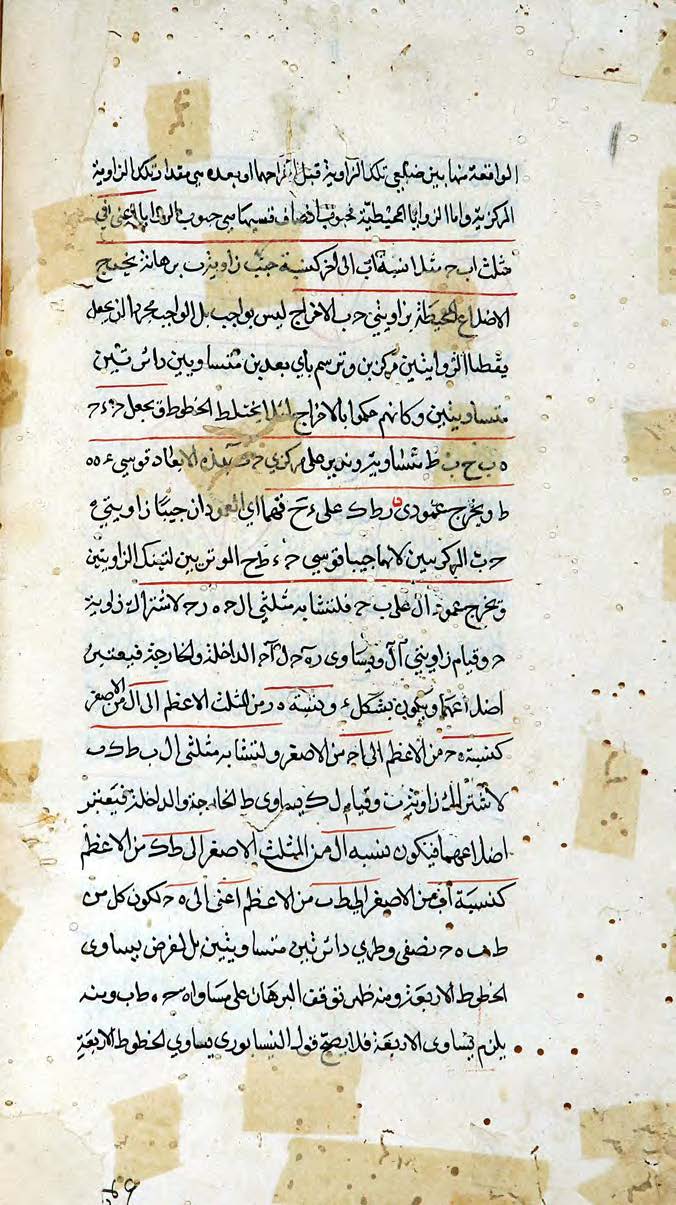 الواقعة منها بين ضلعي تلك الزاوية قبل اخراجهما او بعده هي مقدار تلك الزاوية
المركزية واما الزوايا المحيطية فجيوب انصاف قسيها هي جيوب الزوايا ففي
مثلث اب ح مثلا نسبة اب الى اح كنسبة جيب زاوية ب برهانه يخرج
الاضلاع المحيطة بزاويتي ح ب الاخراج ليس بواجب بل الواجب مجرد ان يجعل
نقطتا الزوايتين مركزين وترسم باي بعدين متساويين دائرتين
متساويتين وكانهم حكموا بالاخراج لئلا يختلط الخطوط ويجعل ح ء
ه ب ح ب ط متساوية وندير على مركزي ح ب بهذه الابعاد قوسي ء ه
ط ويخرج عمودي ه ر ط ك على ء ح فهما اي العمودان جيبا زاويتي
ح ب المركزيتين لانهما جيبا قوسي ح ء ط ح الموترين لتينك الزاويتين
ويخرج عمود ال على ب ح فلتشابه مثلثي ال ح ه ر ح لاشتراك زاوية
ح وقيام زاويتي ل ر ويساوى ر ه ح ل ا ح الداخلة والخارجة فيعتبر
اضلاعهما ويكون بشكل ء ونسبة ه ر من المثلث الاعظم الى ال من الاصغر
كنسبة ه ح من الاعظم الى ا ح من الاصغر ولتشابه مثلثي ال ب ط ك ب
لاشتراك زاوية ب وقيام ل ك يساوى ط الخارجة والداخلة فيعتبر
اضلاعهما فيكون نسبة ال من المثلث الاصغر الى ط ك من الاعظم
كنسبة اب من الاصغر الى ط ب من الاعظم اعنى الى ه ح لكون كل من
ط ب ه ح نصفى قطري دائرتين متساويتين بل لفرض يساوى
الخطوط الاربعة ومنه ظهر توقف البرهان على مساواة ح ه ط ب ومنه
يلزم تساوى الاربعة فلا يصح قول النيسابورى يساوي الخطوط الاربعة